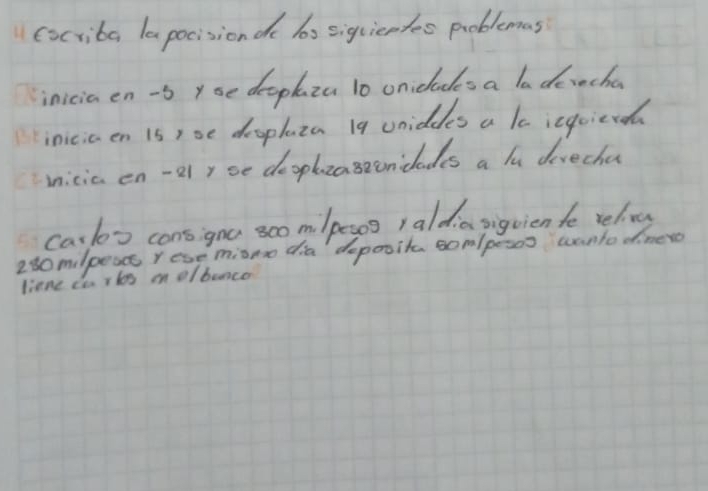 4 Escriba la pocision de los siguientes problemas:
A: inicia en -5 y se desplaza 10 unidades a la derecha
B: inicia en 15 y se desplaza 19 unidades a la izquierda
C: inicia en -21 y se desplaza 32 unidades a la derecha
5: Carlos consigna 300 mil pesos y al dia siguiente retira
230 mil pesos y ese mismo dia deposita 50 mil pesos ¿cuanto dinero
tiene carlos en el banco?